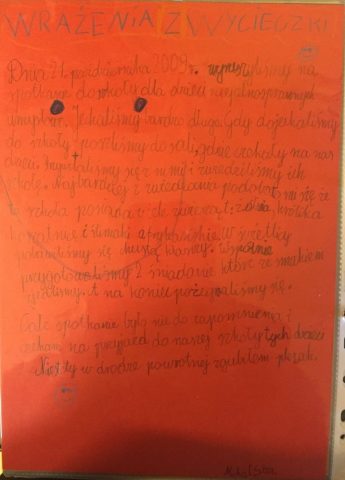 WRAŻENIA Z WYCIECZKI
Dnia 21 października 2009r. wyruszyliśmy na
spotkanie do szkoły dla dzieci niepełnosprawnych
umysłowo. Jechaliśmy bardzo długo. Gdy dojechaliśmy
do szkoły poszliśmy do sali, gdzie czekały na nas
dzieci. Przywitaliśmy się z nimi i zwiedziliśmy ich
szkołę. Najbardziej z zwiedzania podobało mi się że
ta szkoła posiada wiele zwierząt: królika
i ślimaki afrykańskie. W świetlicy
się chustą Wspólnie
przygotowaliśmy śniadanie które ze smakiem
zjedliśmy. A na koniec pożegnaliśmy się.
Całe spotkanie było nie do zapomnienia i
czekam na przyjazd do naszej szkoły tych dzieci
Niestety w drodze powrotnej zgubiłem plecak.